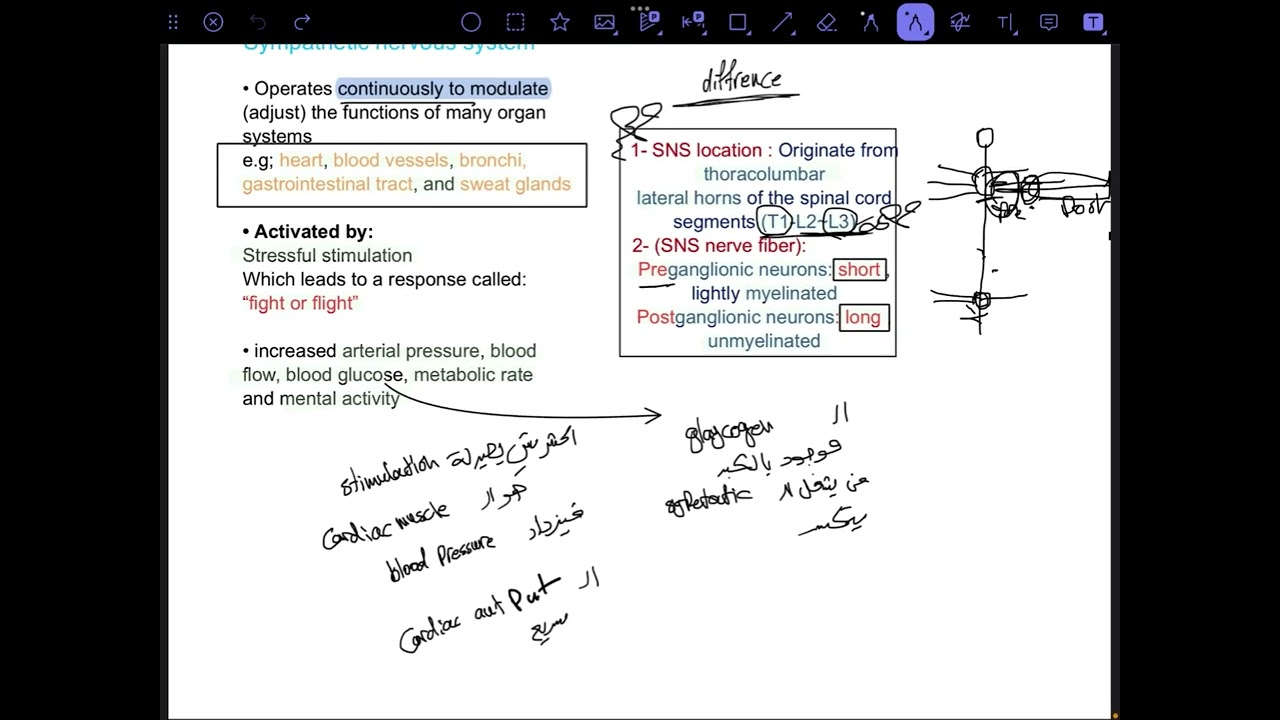 Sympathetic nervous system
• Operates continuously to modulate
(adjust) the functions of many organ
systems
e.g; heart, blood vessels, bronchi,
gastrointestinal tract, and sweat glands
• Activated by:
Stressful stimulation
Which leads to a response called:
“fight or flight”
• increased arterial pressure, blood
flow, blood glucose, metabolic rate
and mental activity
diffrence
1- SNS location : Originate from
thoracolumbar
lateral horns of the spinal cord
segments (T1-L2-L3)
2- (SNS nerve fiber):
Preganglionic neurons: short,
lightly myelinated
Postganglionic neurons: long
unmyelinated
Pre Post
اكثر شي يصيرلة stimulation
هو ال cardiac muscle
فيزداد blood Pressure
ال cardiac out Put
سريع
ال glaycogen
موجود بالكبد
من يشتغل ال
يتكسر